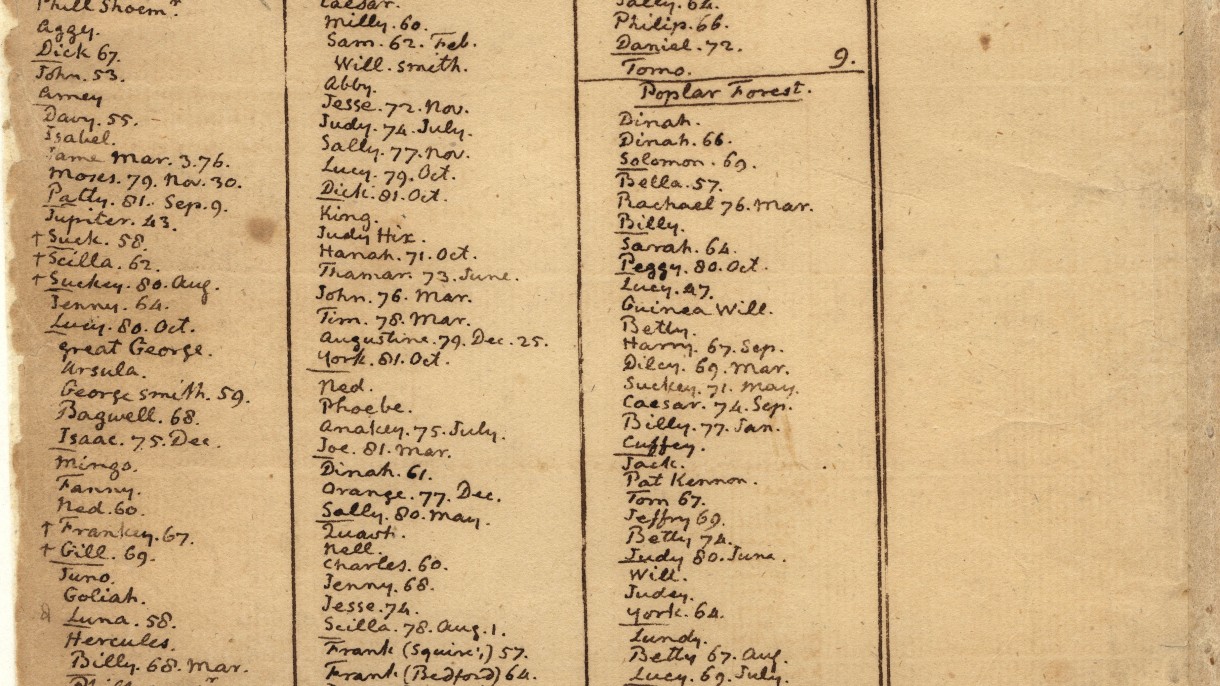 Phill Shoemr.
Aggy.
Dick 67.
John. 53.
Amey
Davy. 55.
Isabel.
Jame Mar. 3. 76.
Moses. 79. Nov. 30.
Patty. 81. Sep. 9.
Jupiter. 43.
† Suck. 58.
† Scilla. 62.
† Suckey. 80. Aug.
Jenny. 64.
Lucy. 80. Oct.
great George.
Ursula.
George smith. 59.
Bagwell. 68.
Isaac. 75. Dec.
Mingo.
Fanny.
Ned. 60.
† Frankey. 67.
† Gill. 69.
Juno.
Goliah.
Luna. 58.
Hercules.
Billy. 68. Mar.
Caesar.
Milly. 60.
Sam. 62. Feb.
Will. smith.
Abby.
Jesse. 72. Nov.
Judy. 74. July.
Sally. 77. Nov.
Lucy. 79. Oct.
Dick. 81. Oct.
King.
Judy Hix.
Hanah. 71. Oct.
Thamar. 73. June.
John. 76. Mar.
Tim. 78. Mar.
Augustine. 79. Dec. 25.
York. 81. Oct.
Ned.
Phoebe.
Anakey. 75. July.
Joe. 81. Mar.
Dinah. 61.
Orange. 77. Dec.
Sally. 80. May.
Quash.
Nell.
Charles. 60.
Jenny. 68.
Jesse. 74.
Scilla. 78. Aug. 1.
Frank (Squire's) 57.
Frank (Bedford) 64.
Sally. 64.
Philip. 66.
Daniel. 72.
Tomo. 9.
Poplar Forest.
Dinah.
Dinah. 66.
Solomon. 69.
Bella. 57.
Rachael 76. Mar.
Billy.
Sarah. 64.
Peggy. 80. Oct.
Lucy. 47.
Guinea Will.
Betty.
Harry. 67. Sep.
Dilcy. 69. Mar.
Suckey. 71. May.
Caesar. 74. Sep.
Billy. 77. Jan.
Cuffey.
Jack.
Pat Kennon.
Tom 67.
Jeffry 69.
Betty 74.
Judy 80. June.
Will.
Judey.
York. 64.
Lundy.
Betty 67. Aug.
Lucy. 69. July.